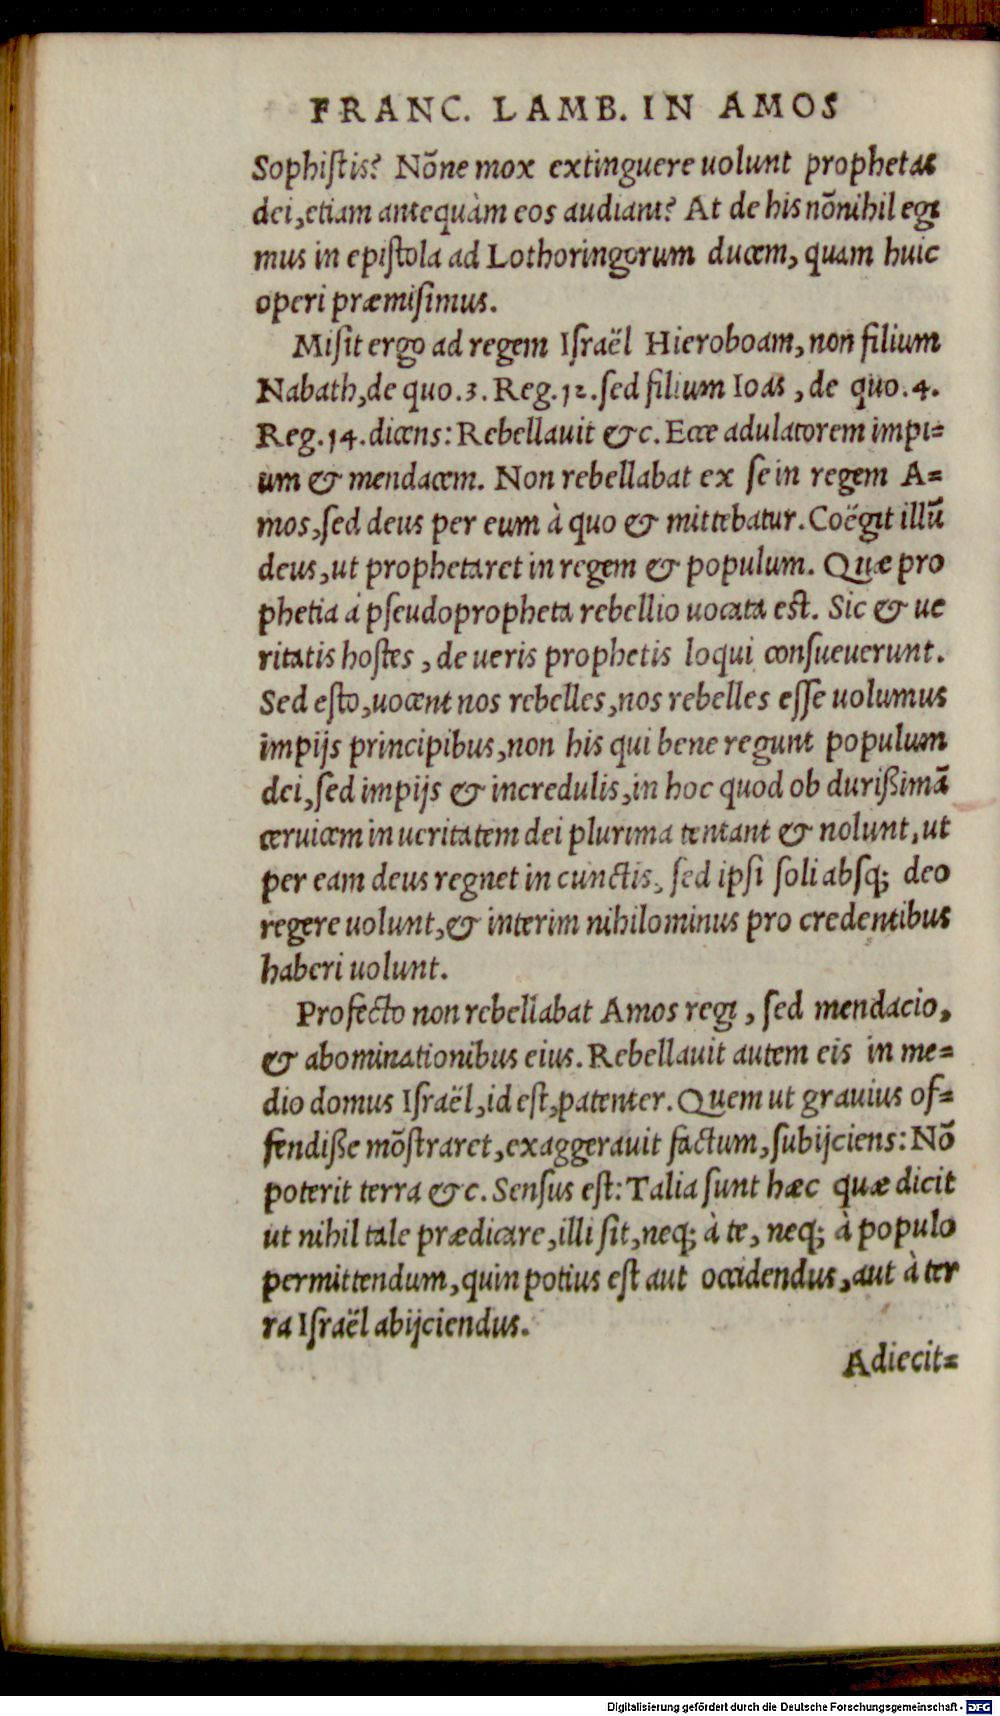 FRANC. LAMB. IN AMOS
Sophiſtis? Nõne mox extinguere uolunt prophetas
dei, etiam antequàm eos audiant? At de his nõnihil egi
mus in epiſtola ad Lothoringorum ducem, quam huic
operi præmiſimus.
Miſit ergo ad regem Iſraël Hieroboam, non filium
Nabath, de quo .3. Reg. 12. ſed filium Ioas, de quo .4.
Reg. 14. dicens: Rebellauit &c. Ecce adulatorem impi=
um & mendacem. Non rebellabat ex ſe in regem A=
mos, ſed deus per eum à quo & mittebatur. Coëgit illũ
deus, ut prophetaret in regem & populum. Quæ pro
phetia á pſeudopropheta rebellio uocata eſt. Sic & ue
ritatis hoſtes, de ueris prophetis loqui conſueuerunt.
Sed eſto, uocent nos rebelles, nos rebelles eſſe uolumus
impijs principibus, non his qui bene regunt populum
dei, ſed impijs & incredulis, in hoc quod ob durißimã
ceruicem in ueritatem dei plurima tentant & nolunt, ut
per eam deus regnet in cunctis, ſed ipſi ſoli abſq; deo
regere uolunt, & interim nihilominus pro credentibus
haberi uolunt.
Profecto non rebellabat Amos regi, ſed mendacio,
& abominationibus eius. Rebellauit autem eis in me=
dio domus Iſraël, id eſt, patenter. Quem ut grauius of=
fendiße mõſtraret, exaggerauit factum, ſubijciens: Nõ
poterit terra &c. Senſus eſt: Talia ſunt hæc quæ dicit
ut nihil tale prædicare, illi ſit, neq; à te, neq; à populo
permittendum, quin potius eſt aut occidendus, aut à ter
ra Iſraël abijciendus.
Adiecit=
Digitalisierung gefördert durch die Deutsche Forschungsgemeinschaft - DFG